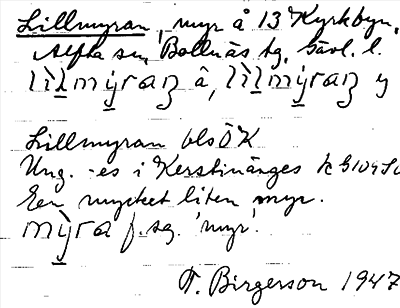 Lillmyran, myr å 13 Kyrkbyn,
Alfta sn, Bollnäs tg. Gävl. l.
lìlmýraɳ â, lìlmýraɳ y
Lillmyran bls ÖK
Ung. -es i Kerstinänges
En mycket liten myr.
mỳra f. sg. 'myr'.
F. Birgerson 1947